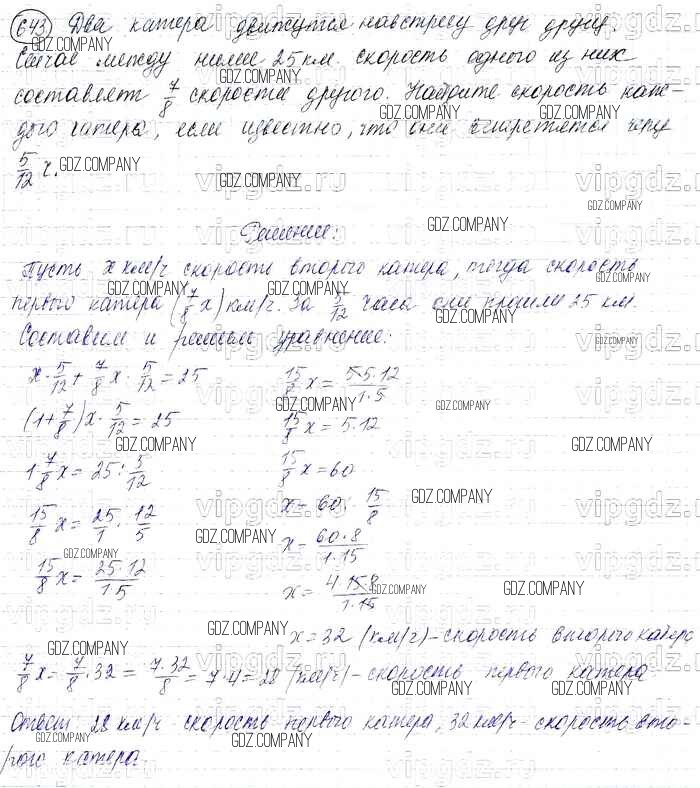 643 Два катера движутся навстречу друг другу.
Сейчас между ними 25 км. скорость одного из них
составляет 7/8 скорости другого. Найдите скорость каж-
дого катера, если известно, что они встретятся через
5/12 ч.
Решение:
Пусть x км/ч скорости второго катера, тогда скорость
первого катера (7/8 x) км/ч. За 5/12 часа они прошли 25 км.
Составим и решим уравнение:
x · 5/12 + 7/8 x · 5/12 = 25
(1 + 7/8) x · 5/12 = 25
1 7/8 x = 25 : 5/12
15/8 x = 25/1 · 12/5
15/8 x = 25·12/1·5
15/8 x = 5·5·12/1·5
15/8 x = 5·12
15/8 x = 60
x = 60 : 15/8
x = 60·8/1·15
x = 4·15·8/1·15
x = 32 (км/ч) - скорость второго катера
7/8 x = 7/8 · 32 = 7·32/8 = 7·4 = 28 (км/ч) - скорость первого катера
Ответ: 28 км/ч - скорость первого катера, 32 км/ч - скорость вто-
рого катера.
GDZ.COMPANY
vipgdz.ru